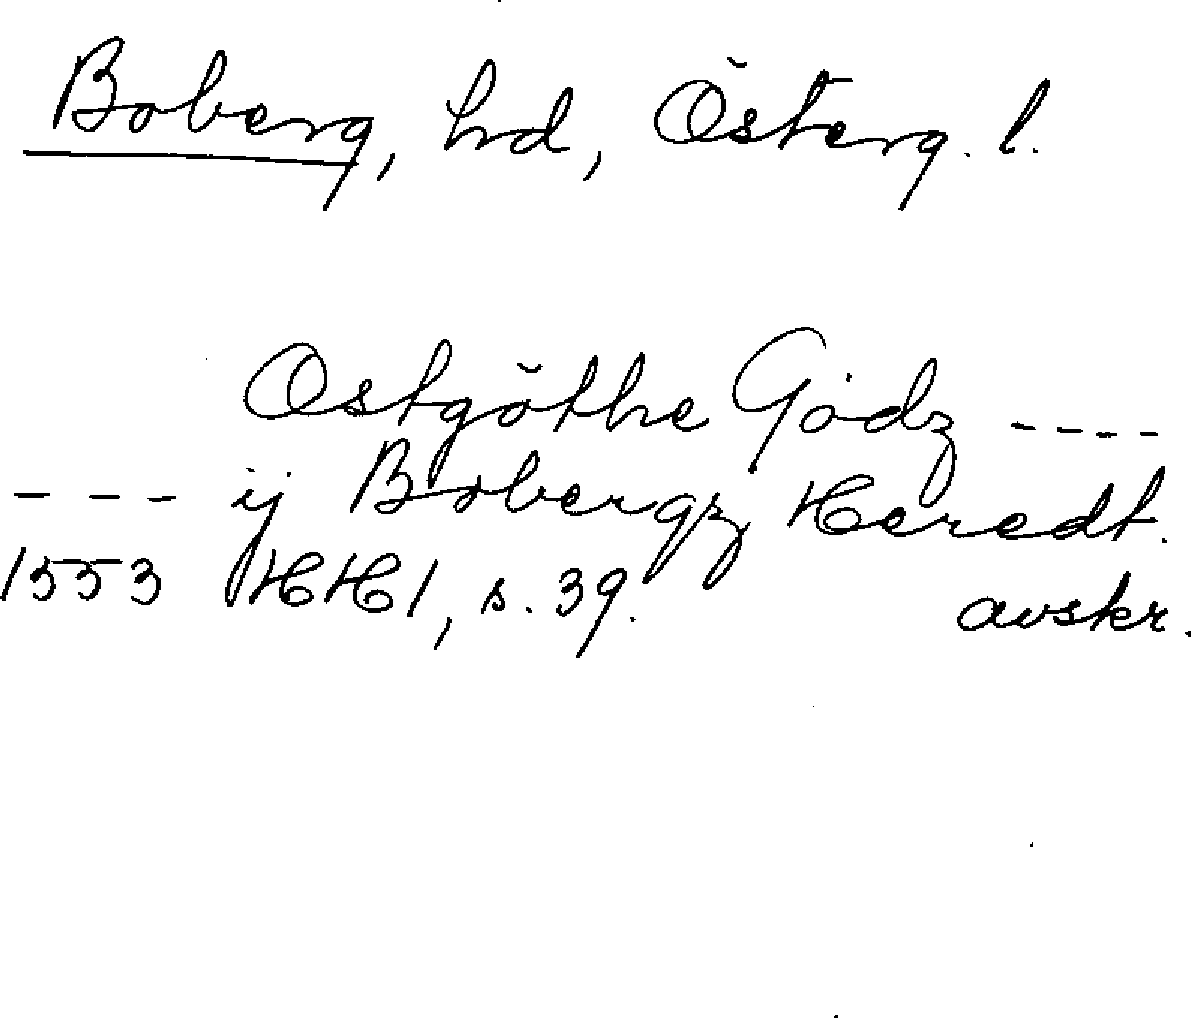 Boberg, hd, Österg. l.
Ostgöthe Godz ----
--- ij Bobergz Heredt.
1553 HH 1, s. 39. avskr.